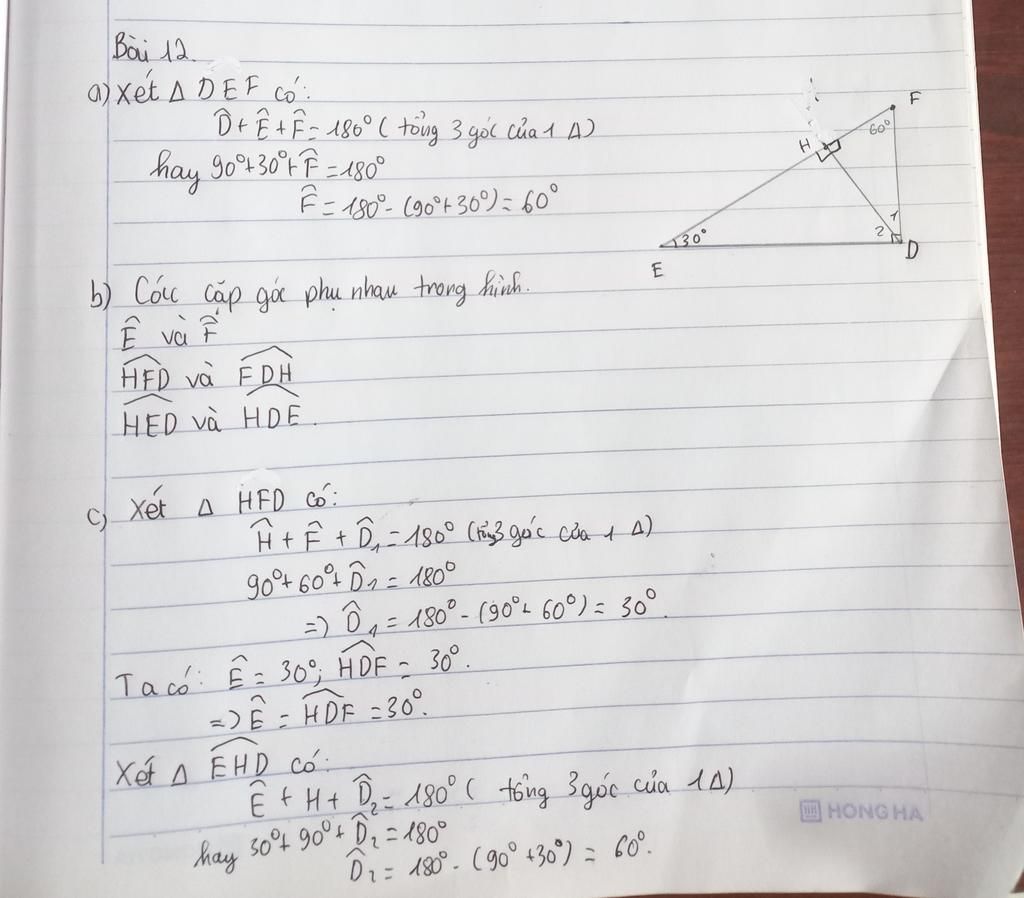 Bài 12.
a) Xét Δ DEF có:
D̂ + Ê + F̂ = 180° ( tổng 3 góc của 1 Δ)
hay 90°+30°+F̂ = 180°
F̂ = 180° - (90°+30°) = 60°
F
60°
H
1
2
30°
D
E
b) Các cặp góc phụ nhau trong hình.
Ê và F̂
HFD và FDH
HED và HDE.
c) Xét Δ HFD có:
Ĥ + F̂ + D̂₁ = 180° (tổng 3 góc của 1 Δ)
90°+60°+D̂₁ = 180°
=> D̂₁ = 180° - (90°+60°) = 30°.
Ta có: Ê = 30°; HDF = 30°.
=> Ê = HDF = 30°.
Xét Δ EHD có:
Ê + H + D̂₂ = 180° ( tổng 3 góc của 1 Δ)
hay 30°+90°+D̂₂ = 180°
D̂₂ = 180° - (90°+30°) = 60°.
HONG HA